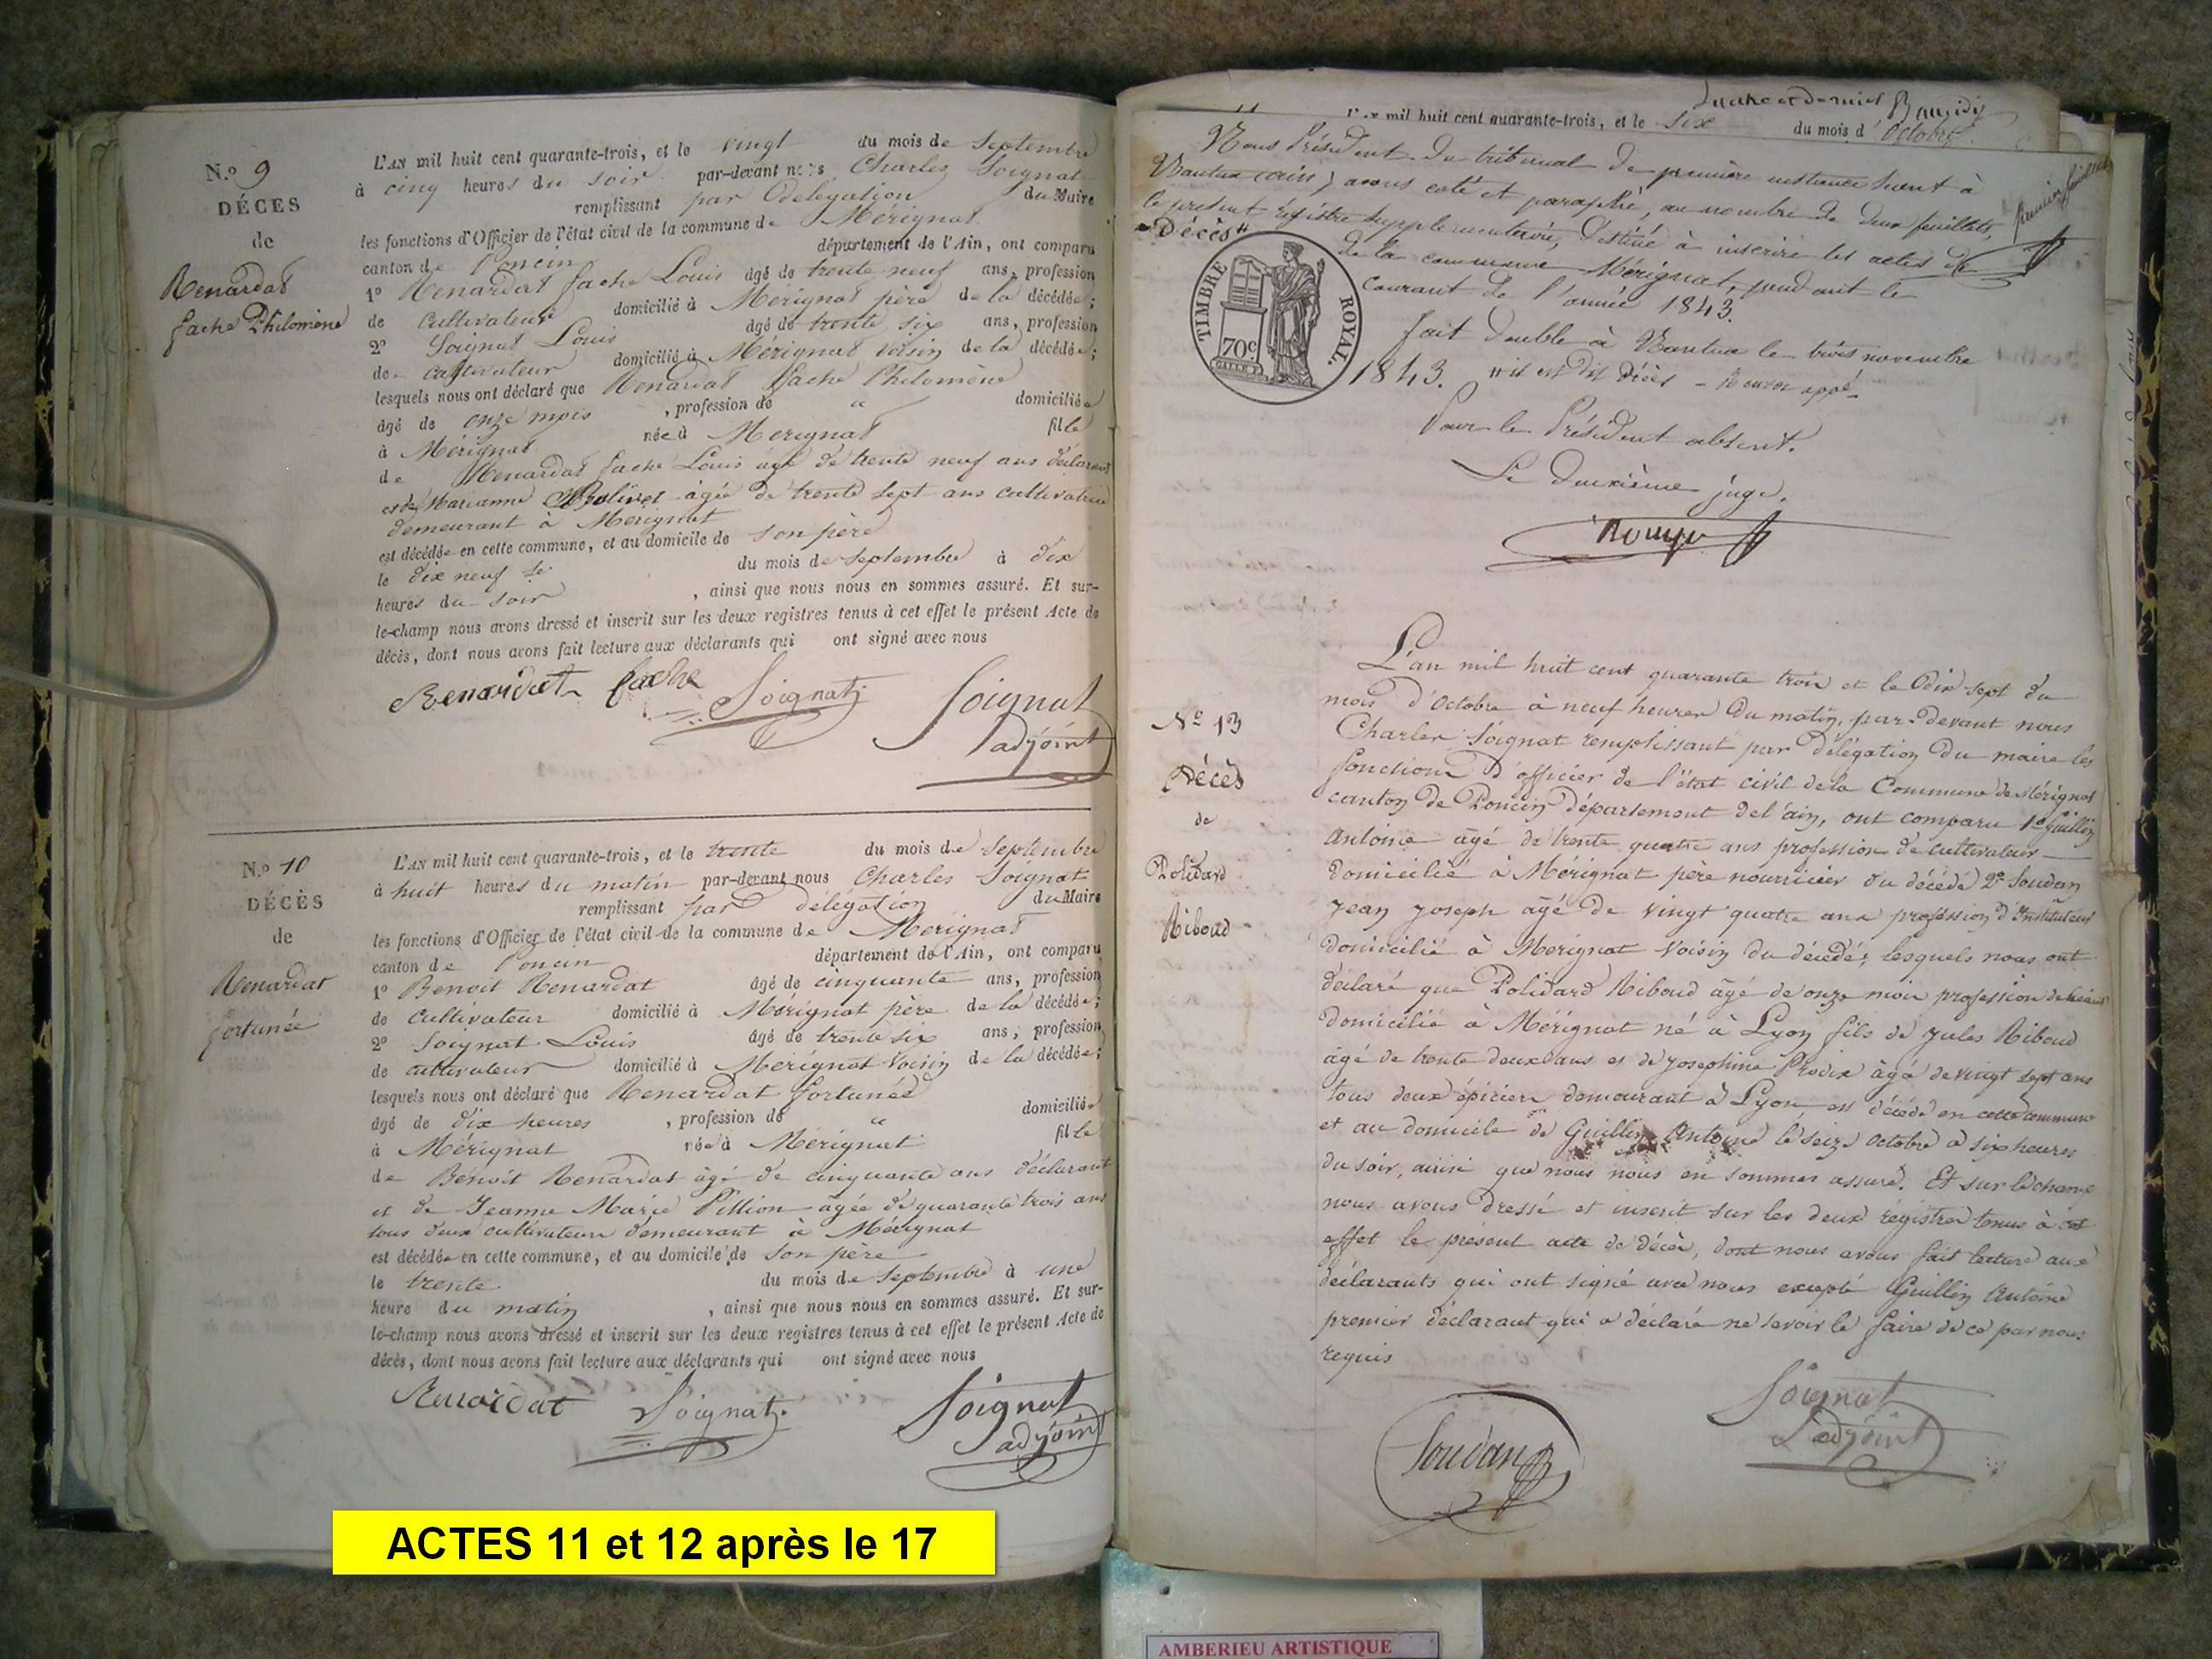 N.º 9
DÉCES
de
Renardat
fache Philomène
L'AN mil huit cent quarante-trois, et le vingt du mois de Septembre
à cinq heures du soir par-devant nous Charles Soignat
remplissant par Délégation du Maire
les fonctions d'Officier de l'état civil de la commune de Mérignat
canton de Poncin département de l'Ain, ont comparu
1º Renardat fache Louis âgé de trente neuf ans, profession
de cultivateur domicilié à Mérignat père de la décédée;
2º Soignat Louis âgé de trente six ans, profession
de cultivateur domicilié à Mérignat voisin de la décédée;
lesquels nous ont déclaré que Renardat fache Philomène
âgé de onze mois , profession de " domiciliée
à Mérignat née à Merignat fille
de Renardat fache Louis âgé de trente neuf ans déclarant
et de Marianne âgée de trente sept ans cultivateurs
demeurant à Merignat
est décédée en cette commune, et au domicile de son père
le dix neuf du mois de septembre à dix
heures du soir , ainsi que nous nous en sommes assuré. Et sur-
le-champ nous avons dressé et inscrit sur les deux registres tenus à cet effet le présent Acte de
décès, dont nous avons fait lecture aux déclarants qui ont signé avec nous
Renardat fache Soignat Soignat
adjoint
N.º 10
DÉCÈS
de
Renardat
fortunée
L'AN mil huit cent quarante-trois, et le trente du mois de Septembre
à huit heures du matin par-devant nous Charles Soignat
remplissant par délégation du Maire
les fonctions d'Officier de l'état civil de la commune de Mérignat
canton de Poncin département de l'Ain, ont comparu
1º Benoit Renardat âgé de cinquante ans, profession
de cultivateur domicilié à Mérignat père de la décédée;
2º Soignat Louis âgé de trente six ans, profession
de cultivateur domicilié à Merignat voisin de la décédée;
lesquels nous ont déclaré que Renardat fortunée
âgé de dix heures , profession de " domiciliée
à Mérignat née à Mérignat fille
de Benoit Renardat âgé de cinquante ans déclarant
et de Jeanne Marie Pillion âgée de quarante trois ans
tous deux cultivateurs demeurant à Mérignat
est décédée en cette commune, et au domicile de son père
le trente du mois de septembre à une
heure du matin , ainsi que nous nous en sommes assuré. Et sur-
le-champ nous avons dressé et inscrit sur les deux registres tenus à cet effet le présent Acte de
décès, dont nous avons fait lecture aux déclarants qui ont signé avec nous
Renardat Soignat Soignat
adjoint
ACTES 11 et 12 après le 17
et dernier
L'AN mil huit cent quarante-trois, et le six du mois d'Octobre
Nous Président du tribunal de première instance séant à
Nantua (ain) avons coté et paraphé, au nombre de deux feuillets,
premier feuillet
le present régistre supplementaire, destiné à inscrire les actes de
"Décès" de la commune Mérignat, pendant le
courant de l'année 1843.
TIMBRE ROYAL.
70c
fait double à Nantua le trois novembre
1843.
Pour le Président absent.
Le deuxième juge,
Nº 13
Décès
de
Polidard
Riboud
L'an mil huit cent quarante trois et le Dix sept du
mois d'Octobre à neuf heures du matin, par-devant nous
Charles Soignat remplissant par délégation du maire les
fonctions d'officier de l'état civil de la Commune de Mérignat
canton de Poncin Département de l'ain, ont comparu 1º Guillin
Antoine âgé de trente quatre ans profession de cultivateur
domicilié à Mérignat père nourricier du décédé 2º Soudan
Jean Joseph âgé de vingt quatre ans profession d'Instituteur
domicilié à Merignat voisin du décédé, lesquels nous ont
déclaré que Polidard Riboud âgé de onze mois profession de
domicilié à Mérignat né à Lyon fils de Jules Riboud
âgé de trente deux ans et de Josephine âgée de vingt sept ans
tous deux épiciers demeurant à Lyon, est décédé en cette commune
et au domicile de Guillin Antoine le seize octobre à six heures
du soir, ainsi que nous nous en sommes assuré. Et sur le champ
nous avons dressé et inscrit sur les deux régistres tenus à cet
effet le présent acte de décès, dont nous avons fait lecture aux
déclarants qui ont signé avec nous excepté Guillin Antoine
premier déclarant qui a déclaré ne savoir le faire de ce par nous
requis
Soudan Soignat
adjoint
AMBERIEU ARTISTIQUE